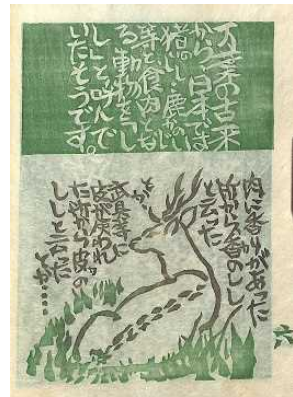 万葉の古来
から日本では
猪いしし鹿かのしし
等と食肉とな
る動物を「し
し」と呼んで
いたそうです。
肉に香りがあった
所から香のしし
と云った
とか、
衣具等に
皮が使われ
た所から皮の
ししと云った
とか……
六